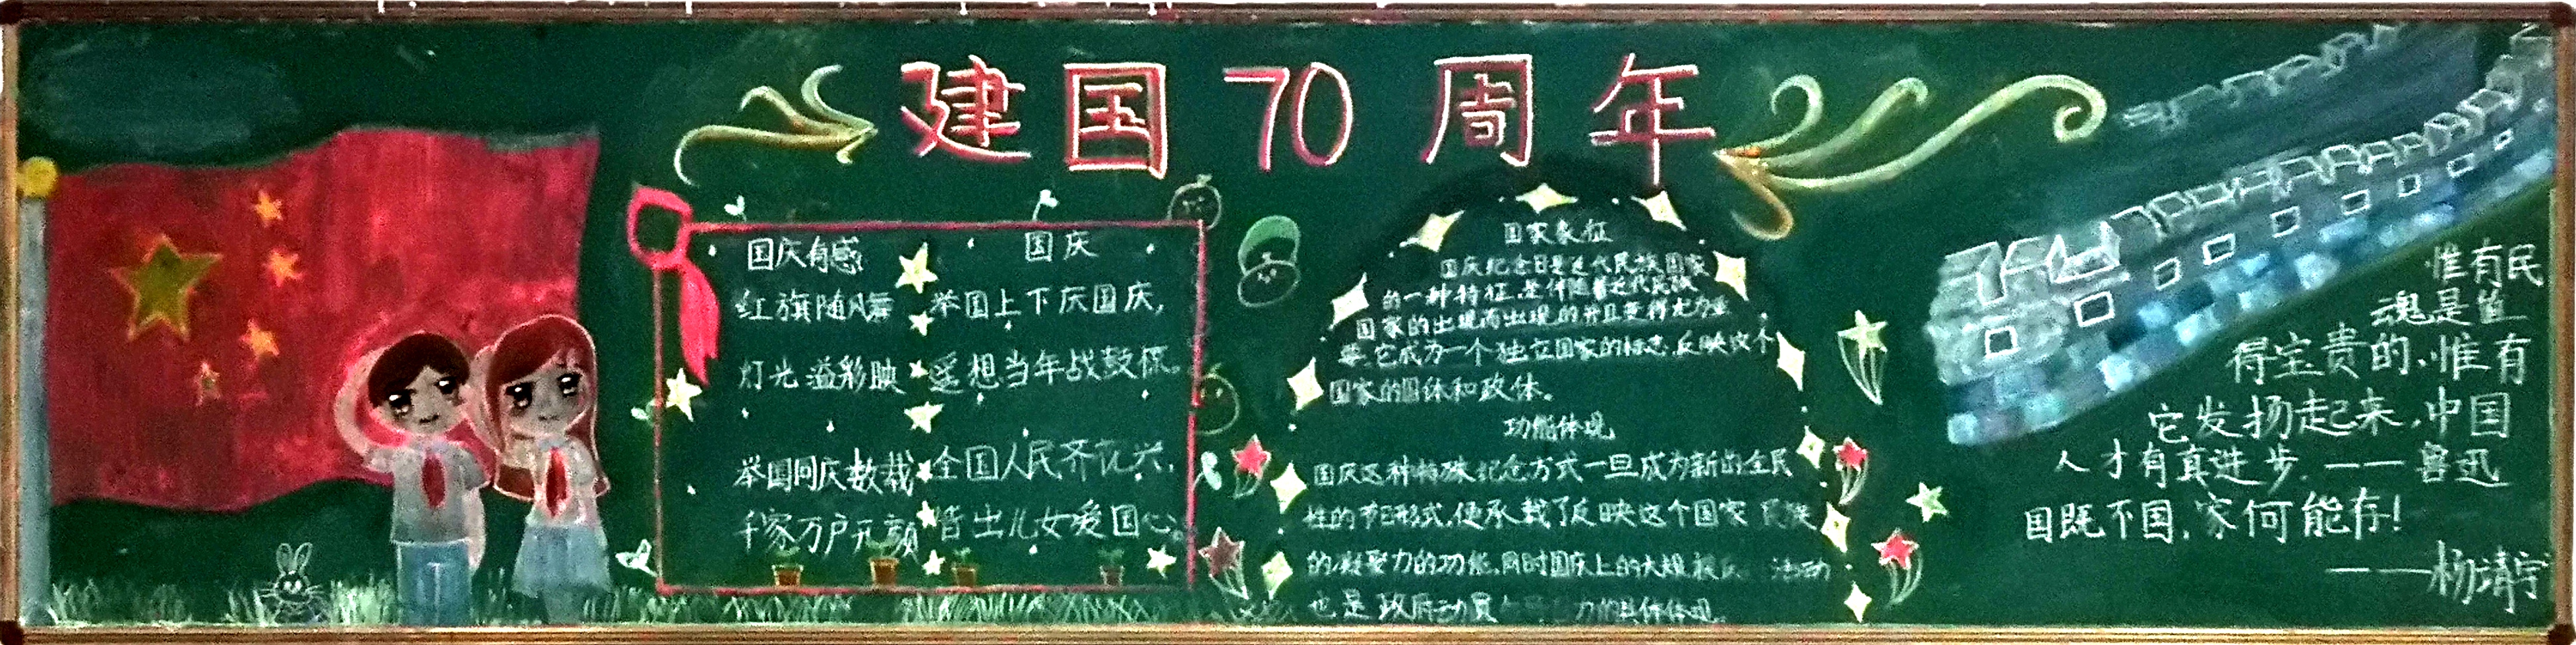 建国70周年
国庆有感
红旗随风舞
灯光溢彩映
举国同庆数载
千家万户开颜
国庆
举国上下庆国庆,
遥想当年战鼓
全国人民齐
出儿女爱国心
国家象征
国庆纪念日是近代民族国家
的一种特征,是伴随着近代民族
国家的出现而出现的并且变得尤为重
要。它成为一个独立国家的标志,反映这个
国家的国体和政体。
功能体现
国庆这种特殊纪念方式一旦成为新的全民
性的节日形式,便承载了反映这个国家 民族
的凝聚力的功能,同时国庆上的大规模 活动
也是政府动员 力的具体体现。
惟有民
魂是值
得宝贵的,惟有
它发扬起来,中国
人才有真进步.——鲁迅
国既不国,家何能存!
——杨靖宇